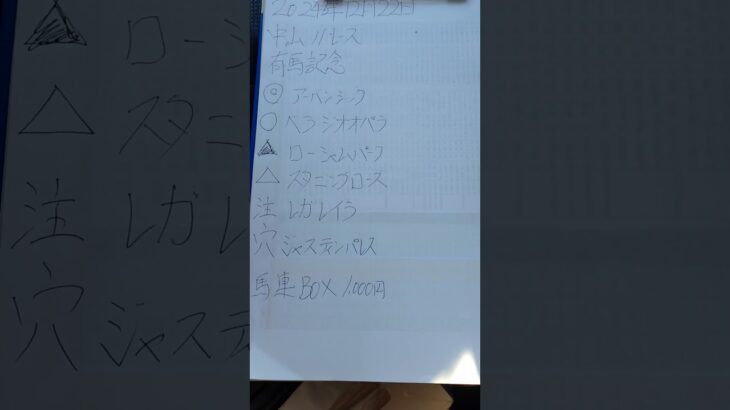 2024年12月22日
中山11レース
有馬記念
◎ アーバンシック
○ ベラジオオペラ
▲ ローシャムパーク
△ スタニングローズ
注 レガレイラ
穴 ジャスティンパレス
馬連BOX 1,000円